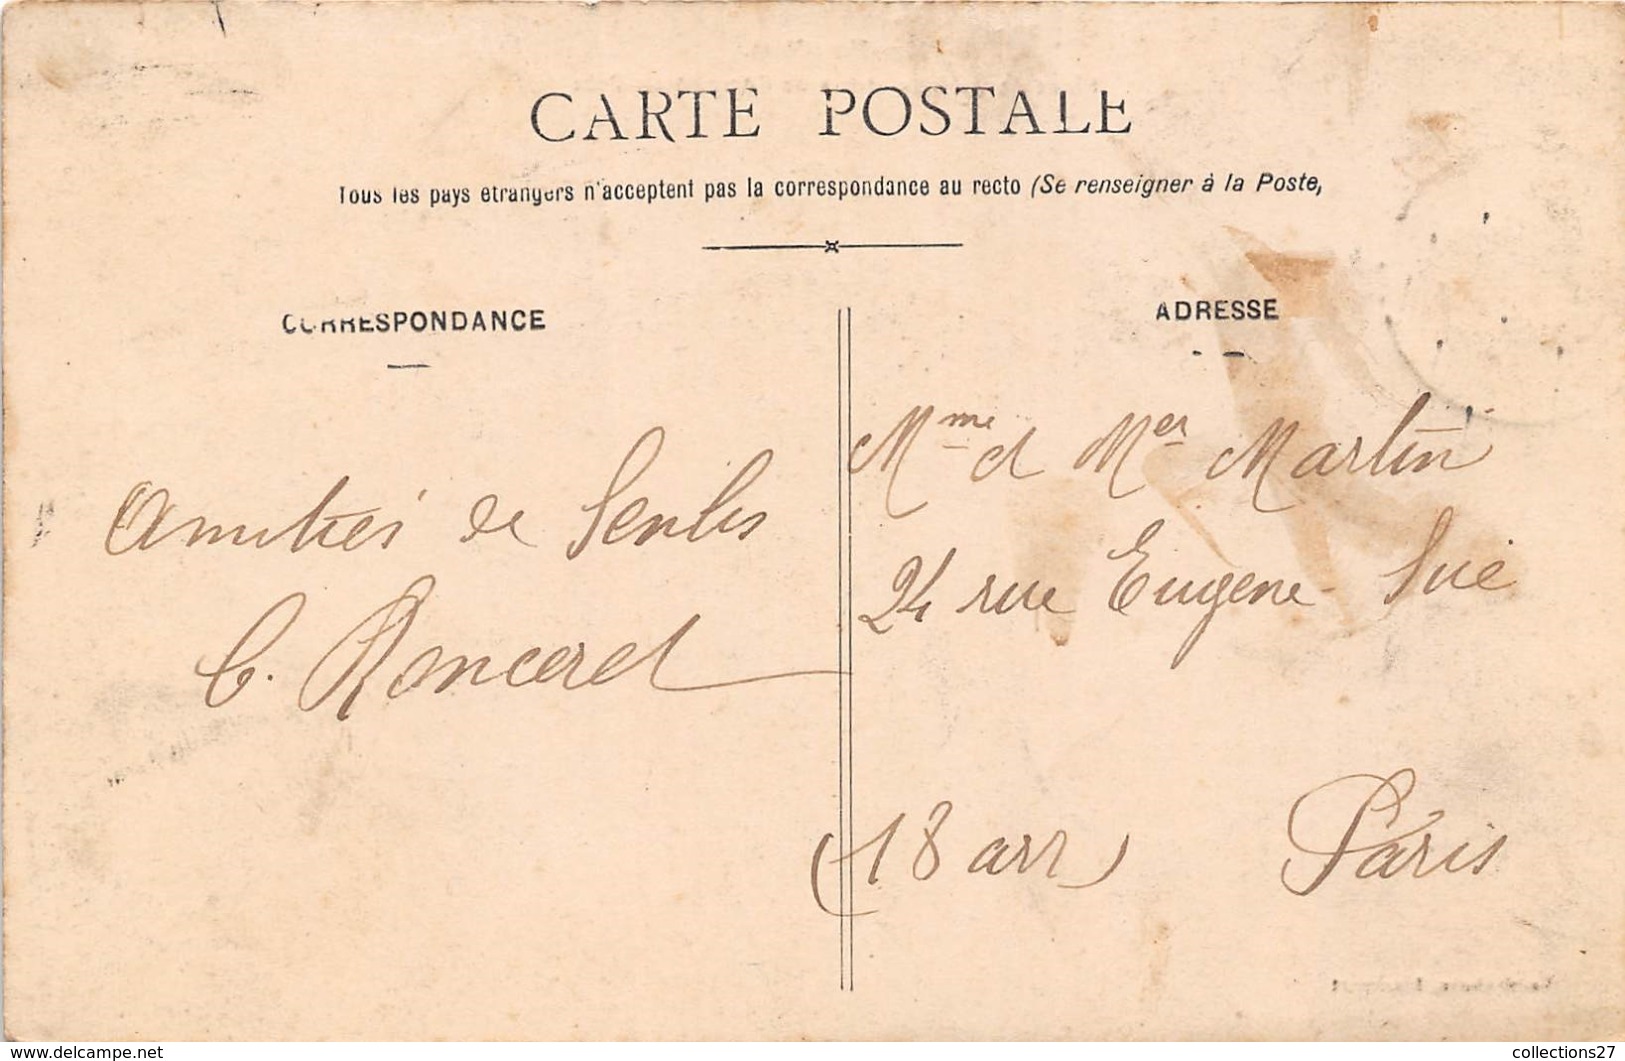 CARTE POSTALE
Tous les pays étrangers n'acceptent pas la correspondance au recto (Se renseigner à la Poste,
CORRESPONDANCE
Amitiés de Senlis
C. Ronceret
ADRESSE
Mme et Mer Martin
24 rue Eugene Sue
(18 arr) Paris
www.delcampe.net
collections27